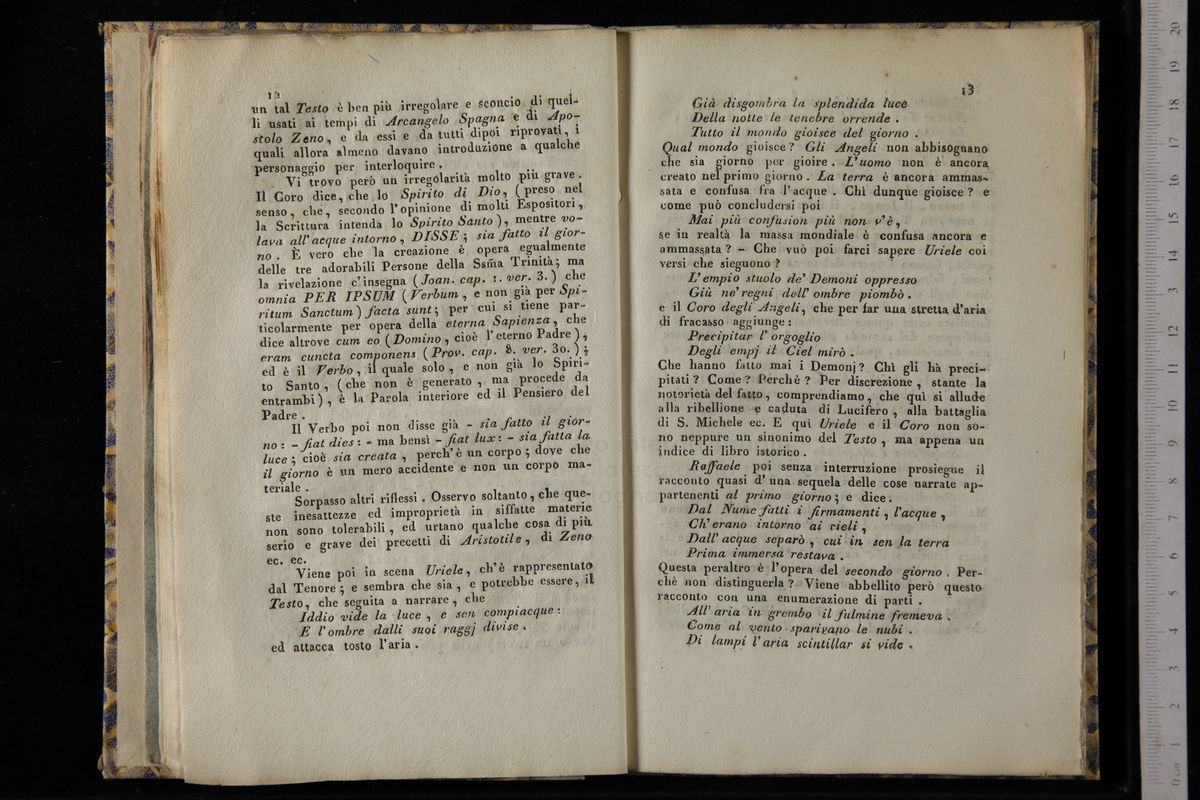 12
un tal Testo è ben più irregolare e sconcio di quel-
li usati ai tempi di Arcangelo Spagna e di Apo-
stolo Zeno, e da essi e da tutti dipoi riprovati, i
quali allora almeno davano introduzione a qualche
personaggio per interloquire.
Vi trovo però un irregolarità molto più grave.
Il Coro dice, che lo Spirito di Dio, (preso nel
senso, che, secondo l'opinione di molti Espositori,
la Scrittura intenda lo Spirito Santo), mentre vo-
lava all'acque intorno, DISSE; sia fatto il gior-
no. È vero che la creazione è opera egualmente
delle tre adorabili Persone della Ssm̃a Trinità; ma
la rivelazione c'insegna (Joan. cap. 1. ver. 3.) che
omnia PER IPSUM (Verbum, e non già per Spi-
ritum Sanctum) facta sunt; per cui si tiene par-
ticolarmente per opera della eterna Sapienza, che
dice altrove cum eo (Domino, cioè l'eterno Padre),
eram cuncta componens (Prov. cap. 8. ver. 30.);
ed è il Verbo, il quale solo, e non già lo Spiri-
to Santo, (che non è generato, ma procede da
entrambi), è la Parola interiore ed il Pensiero del
Padre.
Il Verbo poi non disse già - sia fatto il gior-
no: - fiat dies: - ma bensì - fiat lux: - sia fatta la
luce; cioè sia creata, perch'è un corpo; dove che
il giorno è un mero accidente e non un corpo ma-
teriale.
Sorpasso altri riflessi. Osservo soltanto, che que-
ste inesattezze ed improprietà in siffatte materie
non sono tolerabili, ed urtano qualche cosa di più
serio e grave dei precetti di Aristotile, di Zeno
ec. ec.
Viene poi in scena Uriele, ch'è rappresentato
dal Tenore; e sembra che sia, e potrebbe essere, il
Testo, che seguita a narrare, che
Iddio vide la luce, e sen compiacque:
E l'ombre dalli suoi raggj divise.
ed attacca tosto l'aria.
13
Già disgombra la splendida luce
Della notte le tenebre orrende.
Tutto il mondo gioisce del giorno.
Qual mondo gioisce? Gli Angeli non abbisognano
che sia giorno per gioire. L'uomo non è ancora
creato nel primo giorno. La terra è ancora ammas-
sata e confusa fra l'acque. Chì dunque gioisce? e
come può concludersi poi
Mai più confusion più non v'è,
se in realtà la massa mondiale è confusa ancora e
ammassata? - Che vuò poi farci sapere Uriele coi
versi che sieguono?
L'empio stuolo de' Demoni oppresso
Giù ne' regni dell' ombre piombò.
e il Coro degli Angeli, che per far una stretta d'aria
di fracasso aggiunge:
Precipitar l'orgoglio
Degli empj il Ciel mirò.
Che hanno fatto mai i Demonj? Chì gli hà preci-
pitati? Come? Perchè? Per discrezione, stante la
notorietà del fatto, comprendiamo, che quì si allude
alla ribellione e caduta di Lucifero, alla battaglia
di S. Michele ec. E quì Uriele e il Coro non so-
no neppure un sinonimo del Testo, ma appena un
indice di libro istorico.
Raffaele poi senza interruzione prosiegue il
racconto quasi d' una sequela delle cose narrate ap-
partenenti al primo giorno; e dice.
Dal Nume fatti i firmamenti, l'acque,
Ch'erano intorno ai cieli,
Dall' acque separò, cui in sen la terra
Prima immersa restava.
Questa peraltro è l'opera del secondo giorno. Per-
chè non distinguerla? Viene abbellito però questo
racconto con una enumerazione di parti.
All' aria in grembo il fulmine fremeva.
Come al vento sparivano le nubi.
Di lampi l'aria scintillar si vide.